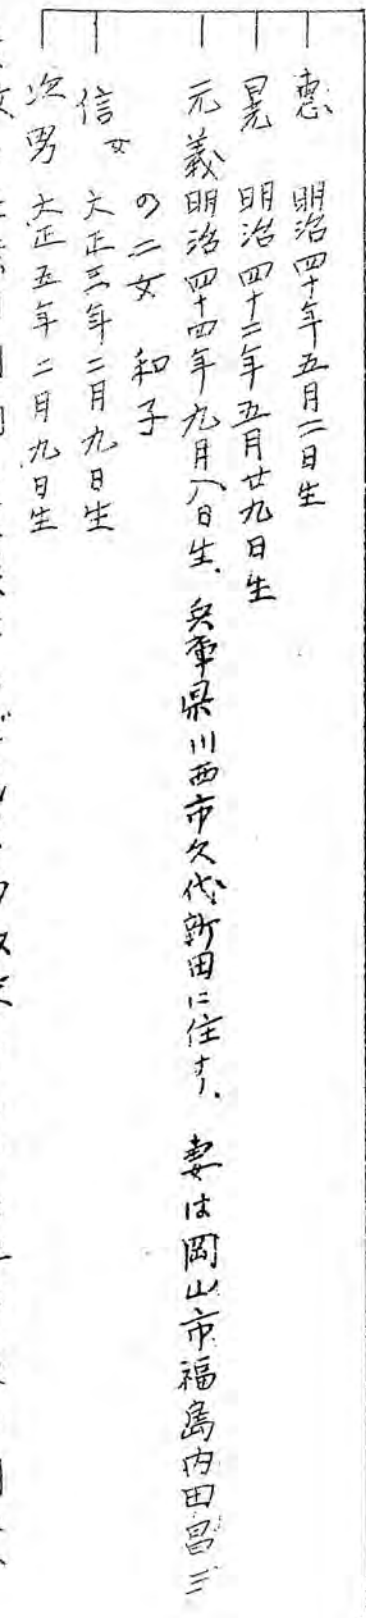 恵 明治四十年五月二日生
晃 明治四十二年五月廿九日生
元義 明治四十四年九月八日生、兵庫県川西市久代新田に住す、妻は岡山市福島内田昌三
の二女 和子
信女 大正三年二月九日生
次男 大正五年二月九日生